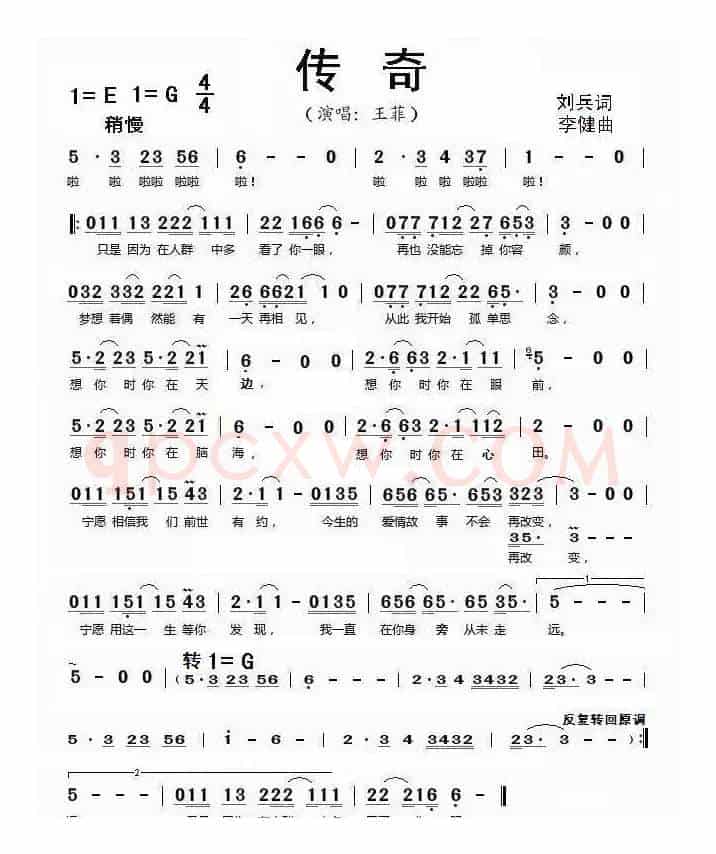 传 奇
1=E 1=G 4/4
(演唱：王菲)
刘兵词
稍慢
李健曲
5 · 3 23 56 | 6 - - 0 | 2 · 3 4 37 | 1 - - 0 |
啦 啦 啦啦 啦啦 啦！ 啦 啦 啦 啦啦 啦！
‖: 011 13 222 111 | 22 166 6 - | 077 712 27 653 | 3 - 00 |
只是 因为 在人群 中多 看了 你一眼， 再也 没能忘 掉 你容 颜，
032 332 221 1 | 26 6621 1 0 | 077 712 22 65· | 3 - 0 0 |
梦想 若偶 然能 有 一天 再相 见， 从此 我开始 孤 单思 念，
5·2 23 5·2 21 | 6 - 00 | 2·6 63 2·1 11 | 6 5 - 00 |
想 你 时 你 在 天 边， 想 你 时 你 在 眼 前，
5·2 23 5·2 21 | 6 - 00 | 2·6 63 2·1 112 | 2 - 00 |
想 你 时 你 在 脑 海， 想 你 时 你 在 心 田。
qpcxw.COM
011 151 15 43 | 2·1 1 - 0135 | 656 65· 653 323 | 3 - 00 |
宁愿 相信我 们 前世 有 约， 今生的 爱情故 事 不会 再改变，
35· 3 - - -
再改 变，
1
011 151 15 43 | 2·1 1 - 0135 | 656 65· 65 35· | 5 - - - |
宁愿 用这一 生 等你 发 现， 我一直 在你身 旁 从未 走 远。
转 1=G
5 - 0 0 | (5·3 23 56 | 6 - - - | 2·3 4 3432 | 23· 3 - - |
反复转回原调
5 · 3 23 56 | i - 6 - | 2·3 4 3432 | 23· 3 - - ) :‖
2
5 - - - | 011 13 222 111 | 22 216 6 - ‖